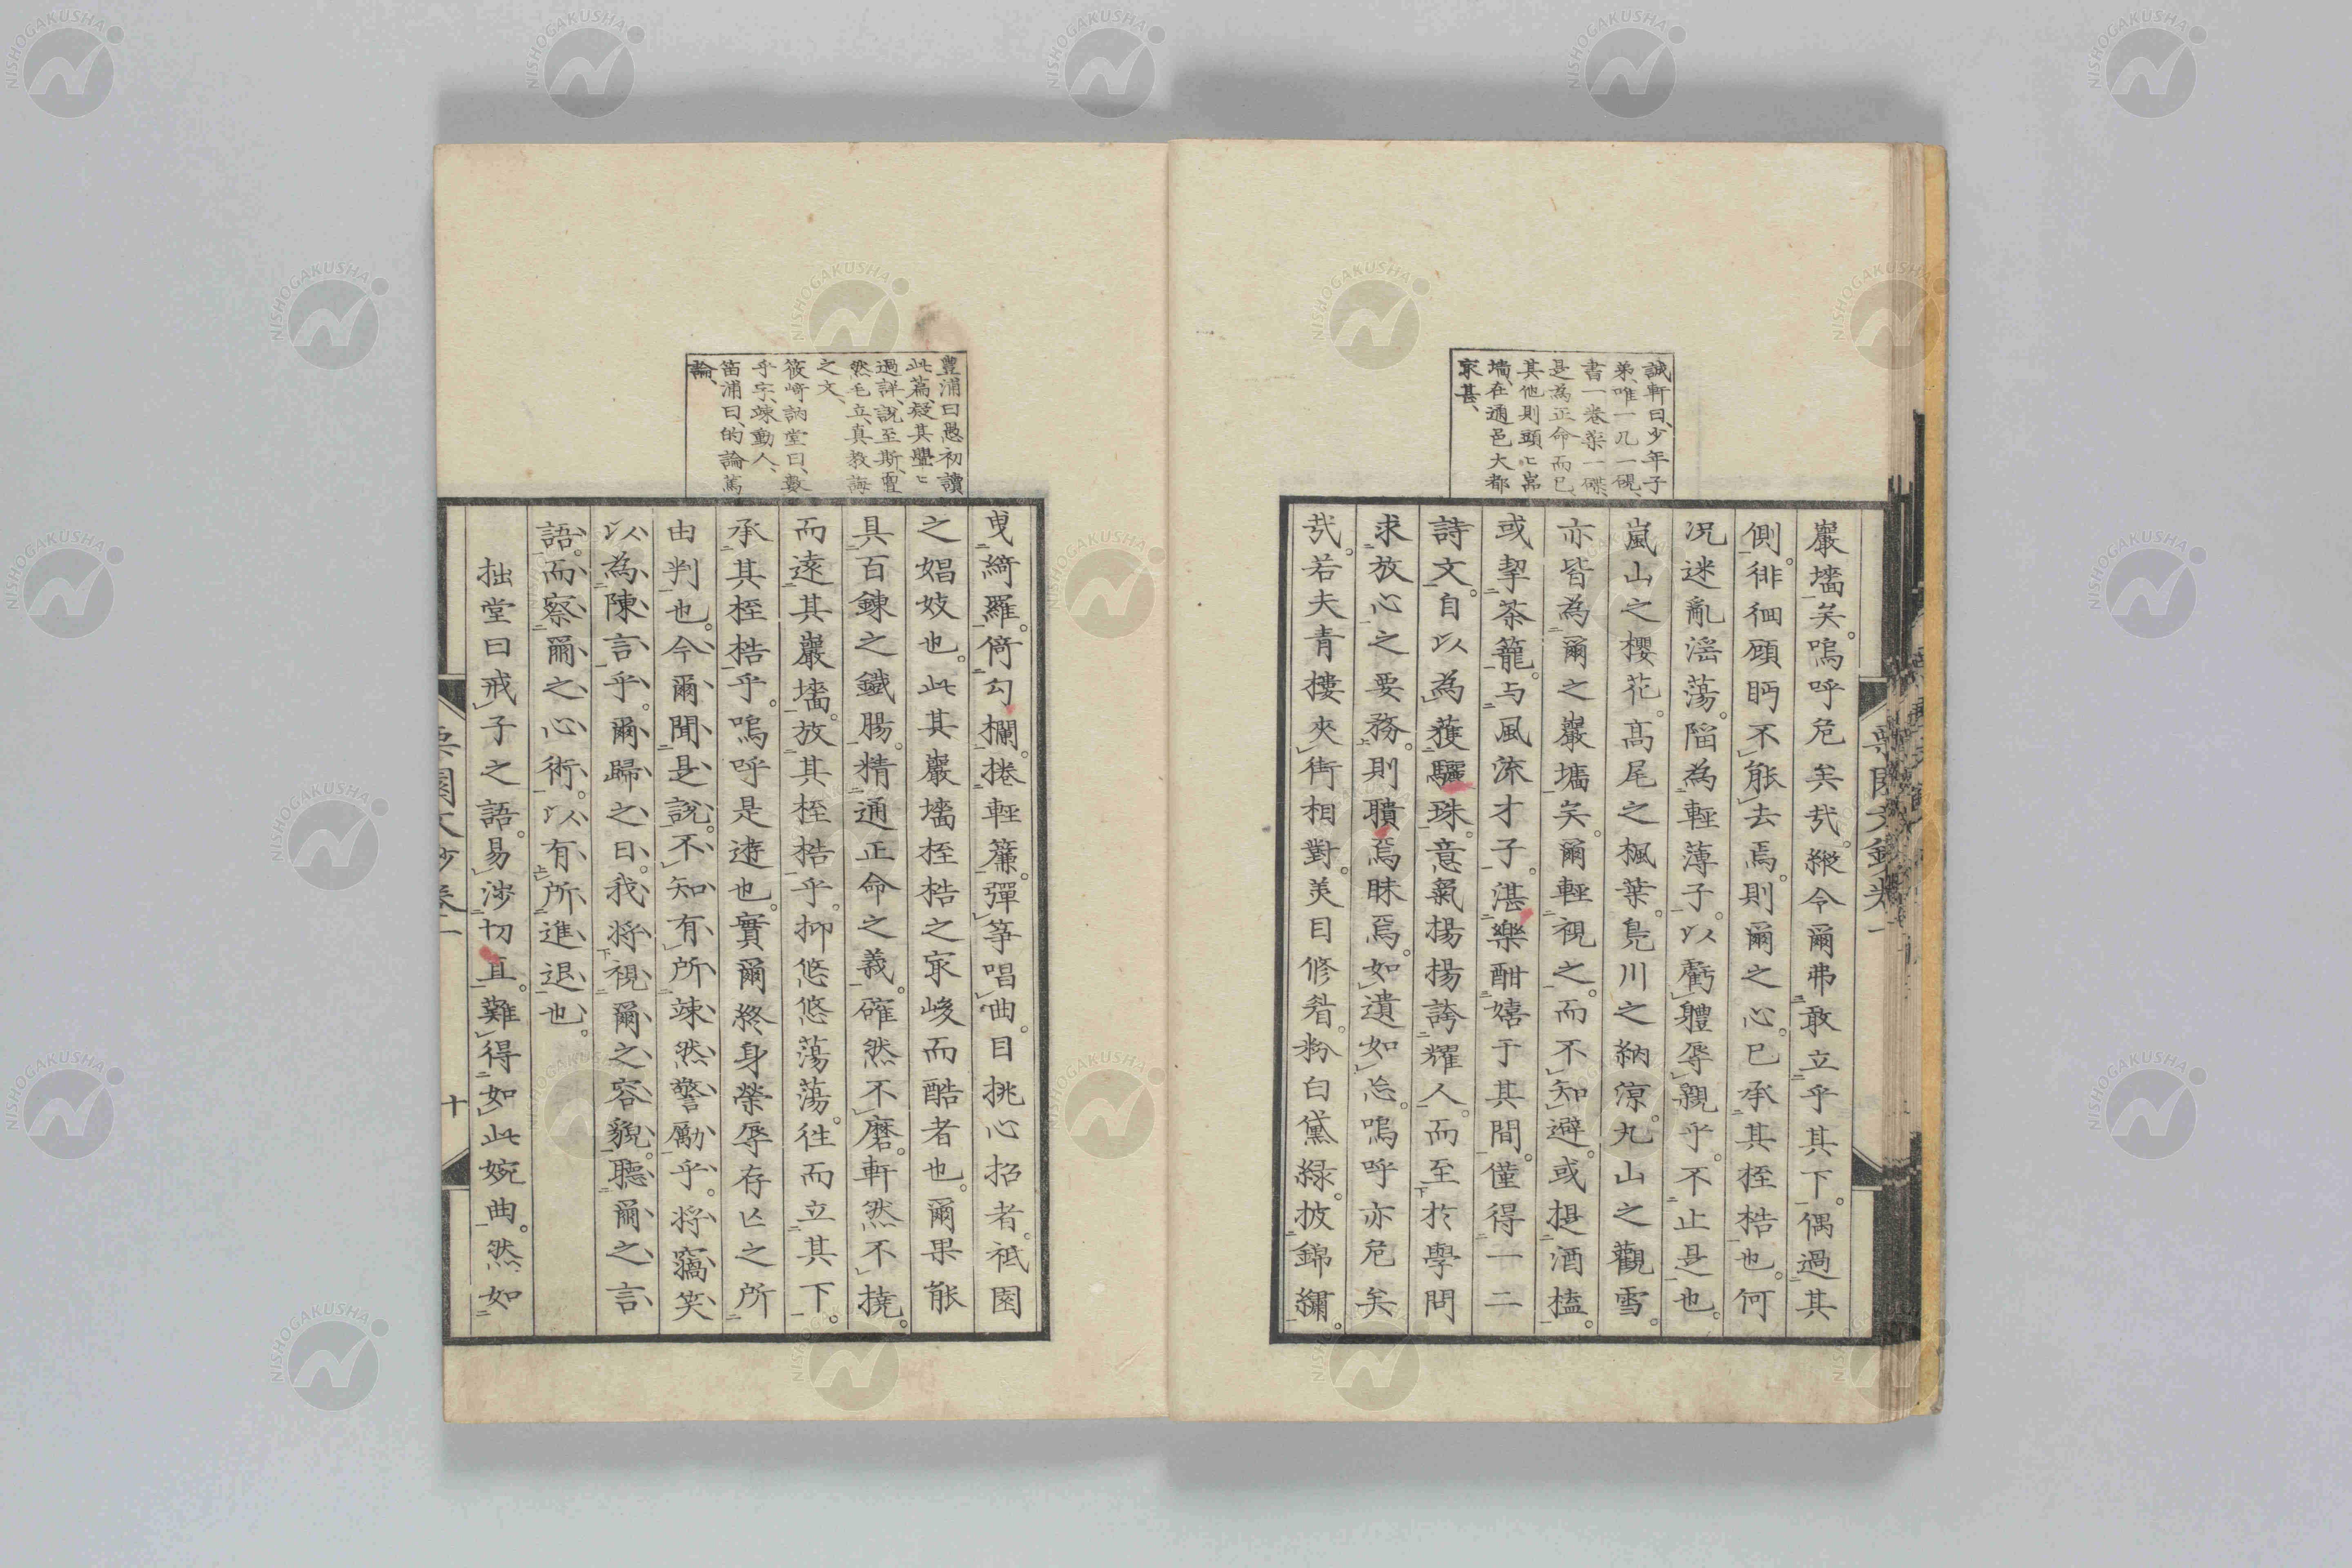 誠軒曰、少年子
弟、唯一几一硯、
書一卷、藥一碟、
是為正命而已、
其他則頭〻嵓
墻、在通邑大都
㝡甚、
巖墻矣。嗚呼危矣哉。縱令爾弗敢立乎其下。偶過其
側。徘徊顧眄不能去焉。則爾之心。已承其桎梏也。何
况迷亂滛蕩。陷為輕薄子。以虧體辱親乎。不止是也。
嵐山之櫻花。高尾之楓葉。鳧川之納涼。丸山之觀雪。
亦皆為爾之巖墻矣。爾輕視之。而不知避。或提酒榼。
或挈茶籠。与風流才子。湛樂酣嬉于其間。僅得一二
詩文。自以為獲驪珠。意氣揚揚誇耀人。而至於學問
求放心之要務。則聵焉昧焉。如遺如忘。嗚呼亦危矣
哉。若夫青樓夾街相對。美目修眉。粉白黛綠。披錦繝。
豐浦曰、愚初讀
此篇、疑其疊〻
過詳、說至斯、亶
然毛立、真教誨
之文、
筱崎訥堂曰、數
乎字、竦動人、
笛浦曰、的論篤
論、
曳綺羅。倚勾欄。捲輕簾。彈箏唱曲。目挑心招者。祗園
之娼妓也。此其巖墻桎梏之㝡峻而酷者也。爾果能
具百鍊之鐵膓。精通正命之義。確然不磨。軒然不撓。
而遠其巖墻。放其桎梏乎。抑悠悠蕩蕩。徃而立其下。
承其桎梏乎。嗚呼是途也。實爾終身榮辱存亾之所
由判也。今爾聞是說。不知有所竦然警勵乎。將竊笑
以為陳言乎。爾歸之日。我將視爾之容貌。聽爾之言
語。而察爾之心術。以有所進退也。
拙堂曰。戒子之語。易涉切直。難得如此婉曲。然如
十